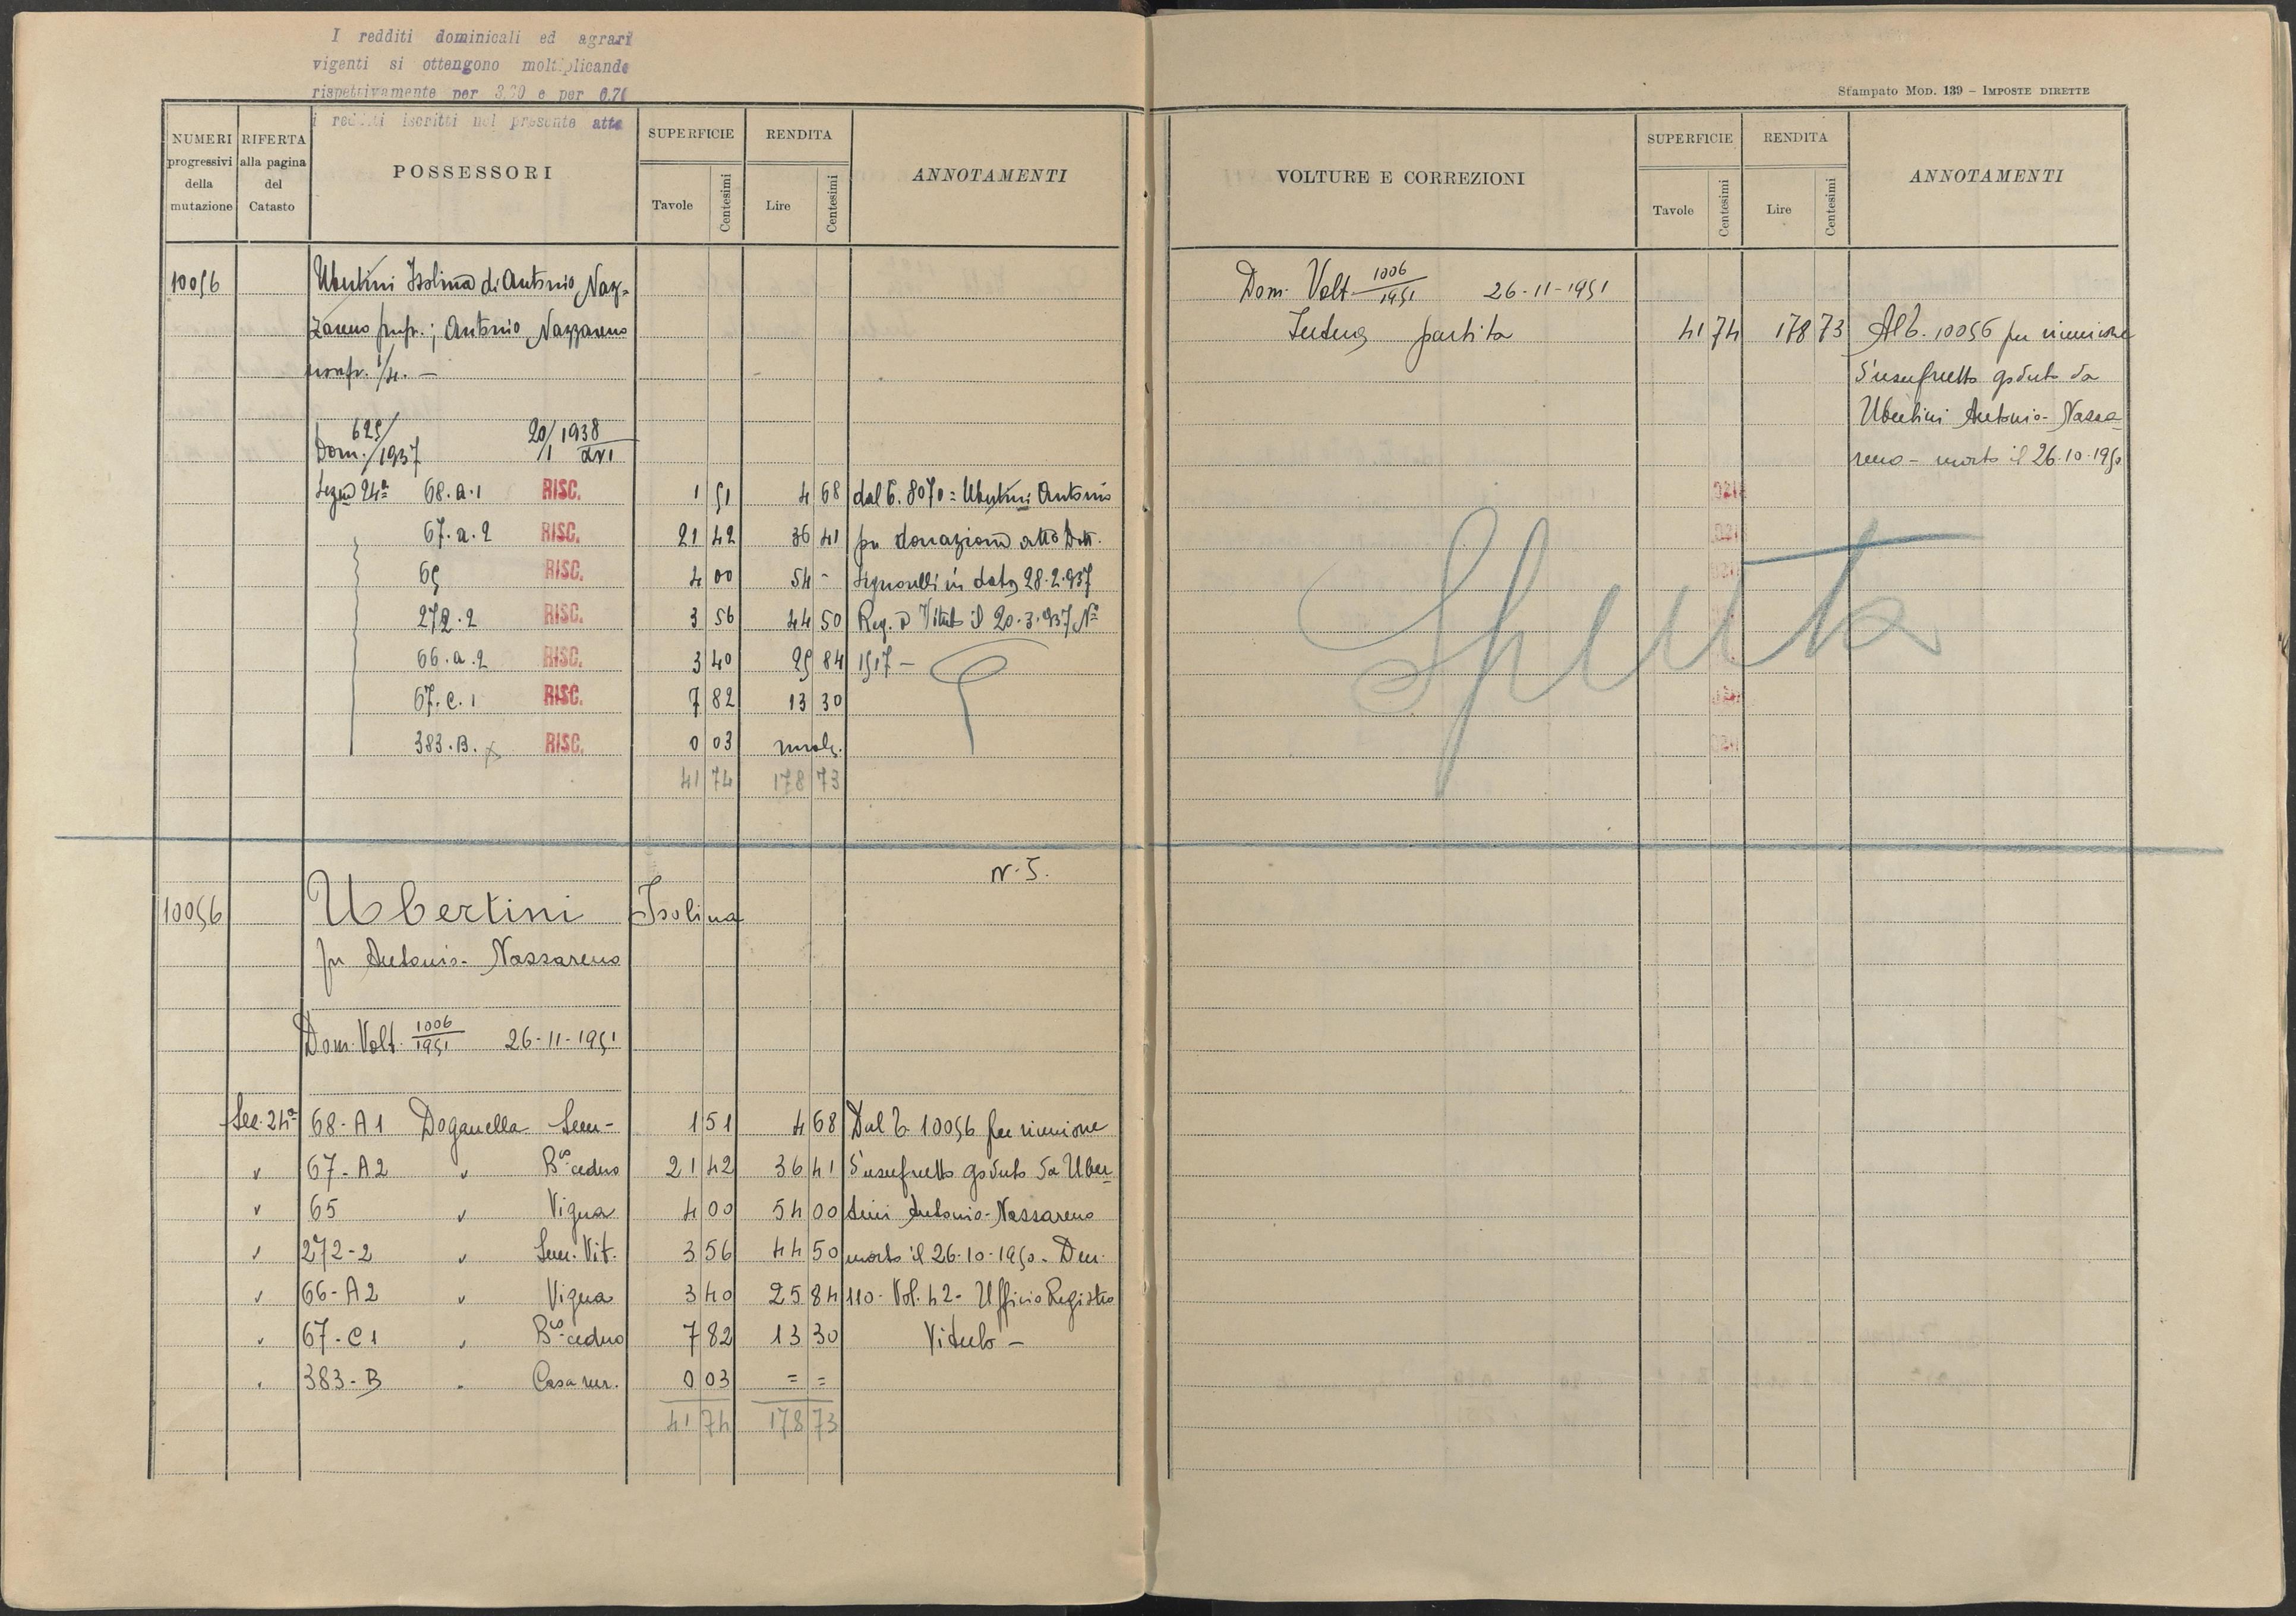 I redditi dominicali ed agrari
vigenti si ottengono moltiplicando
rispettivamente per e per
i redditi iscritti nel presente atto
NUMERI progressivi della mutazione
RIFERTA alla pagina del Catasto
POSSESSORI
SUPERFICIE
Tavole Centesimi
RENDITA
Lire Centesimi
ANNOTAMENTI
10056 Ubertini Isolina di Antonio Naz-
zareno propr.; Antonio Nazzareno
usufr. 1/4. —
Dom. 625/1937 20/1 1938 XVI
Segno 24ª 68.a.1 RISC. 1 51 4 68 dal C. 8070 = Ubertini Antonio
67.a.2 RISC. 21 42 36 41 per donazione atto Dott.
65 RISC. 4 00 54 - Signorelli in data 28.2.937
272.2 RISC. 3 56 44 50 Reg. a Viterbo il 20.3.937 Nº
66.a.2 RISC. 3 40 25 84 1517 —
67.C.1 RISC. 7 82 13 30
383.B. RISC. 0 03
41 74 178 73
N. 5.
10056 Ubertini Isolina
fu Antonio-Nazzareno
Dom. Volt. 1006/1951 26-11-1951
Sez. 24ª 68-A1 Doganella Sem- 1 51 4 68 Dal C. 10056 per riunione
" 67-A2 " Bº ceduo 21 42 36 41 d'usufrutto goduto da Uber-
" 65 " Vigna 4 00 54 00 tini Antonio-Nazzareno
" 272-2 " Sem. Vit. 3 56 44 50 morto il 26-10-1950. Den.
" 66-A2 " Vigna 3 40 25 84 110. Vol. 42- Ufficio Registro
" 67-C1 " Bº ceduo 7 82 13 30 Viterbo —
" 383-B " Casa rur. 0 03 = =
41 74 178 73
Stampato Mod. 139 – Imposte dirette
VOLTURE E CORREZIONI
SUPERFICIE
Tavole Centesimi
RENDITA
Lire Centesimi
ANNOTAMENTI
Dom. Volt. 1006/1951 26-11-1951
Intera partita 41 74 178 73 Al C. 10056 per riunione
d'usufrutto goduto da
Ubertini Antonio-Nazza-
reno - morto il 26-10-1950
Spenta